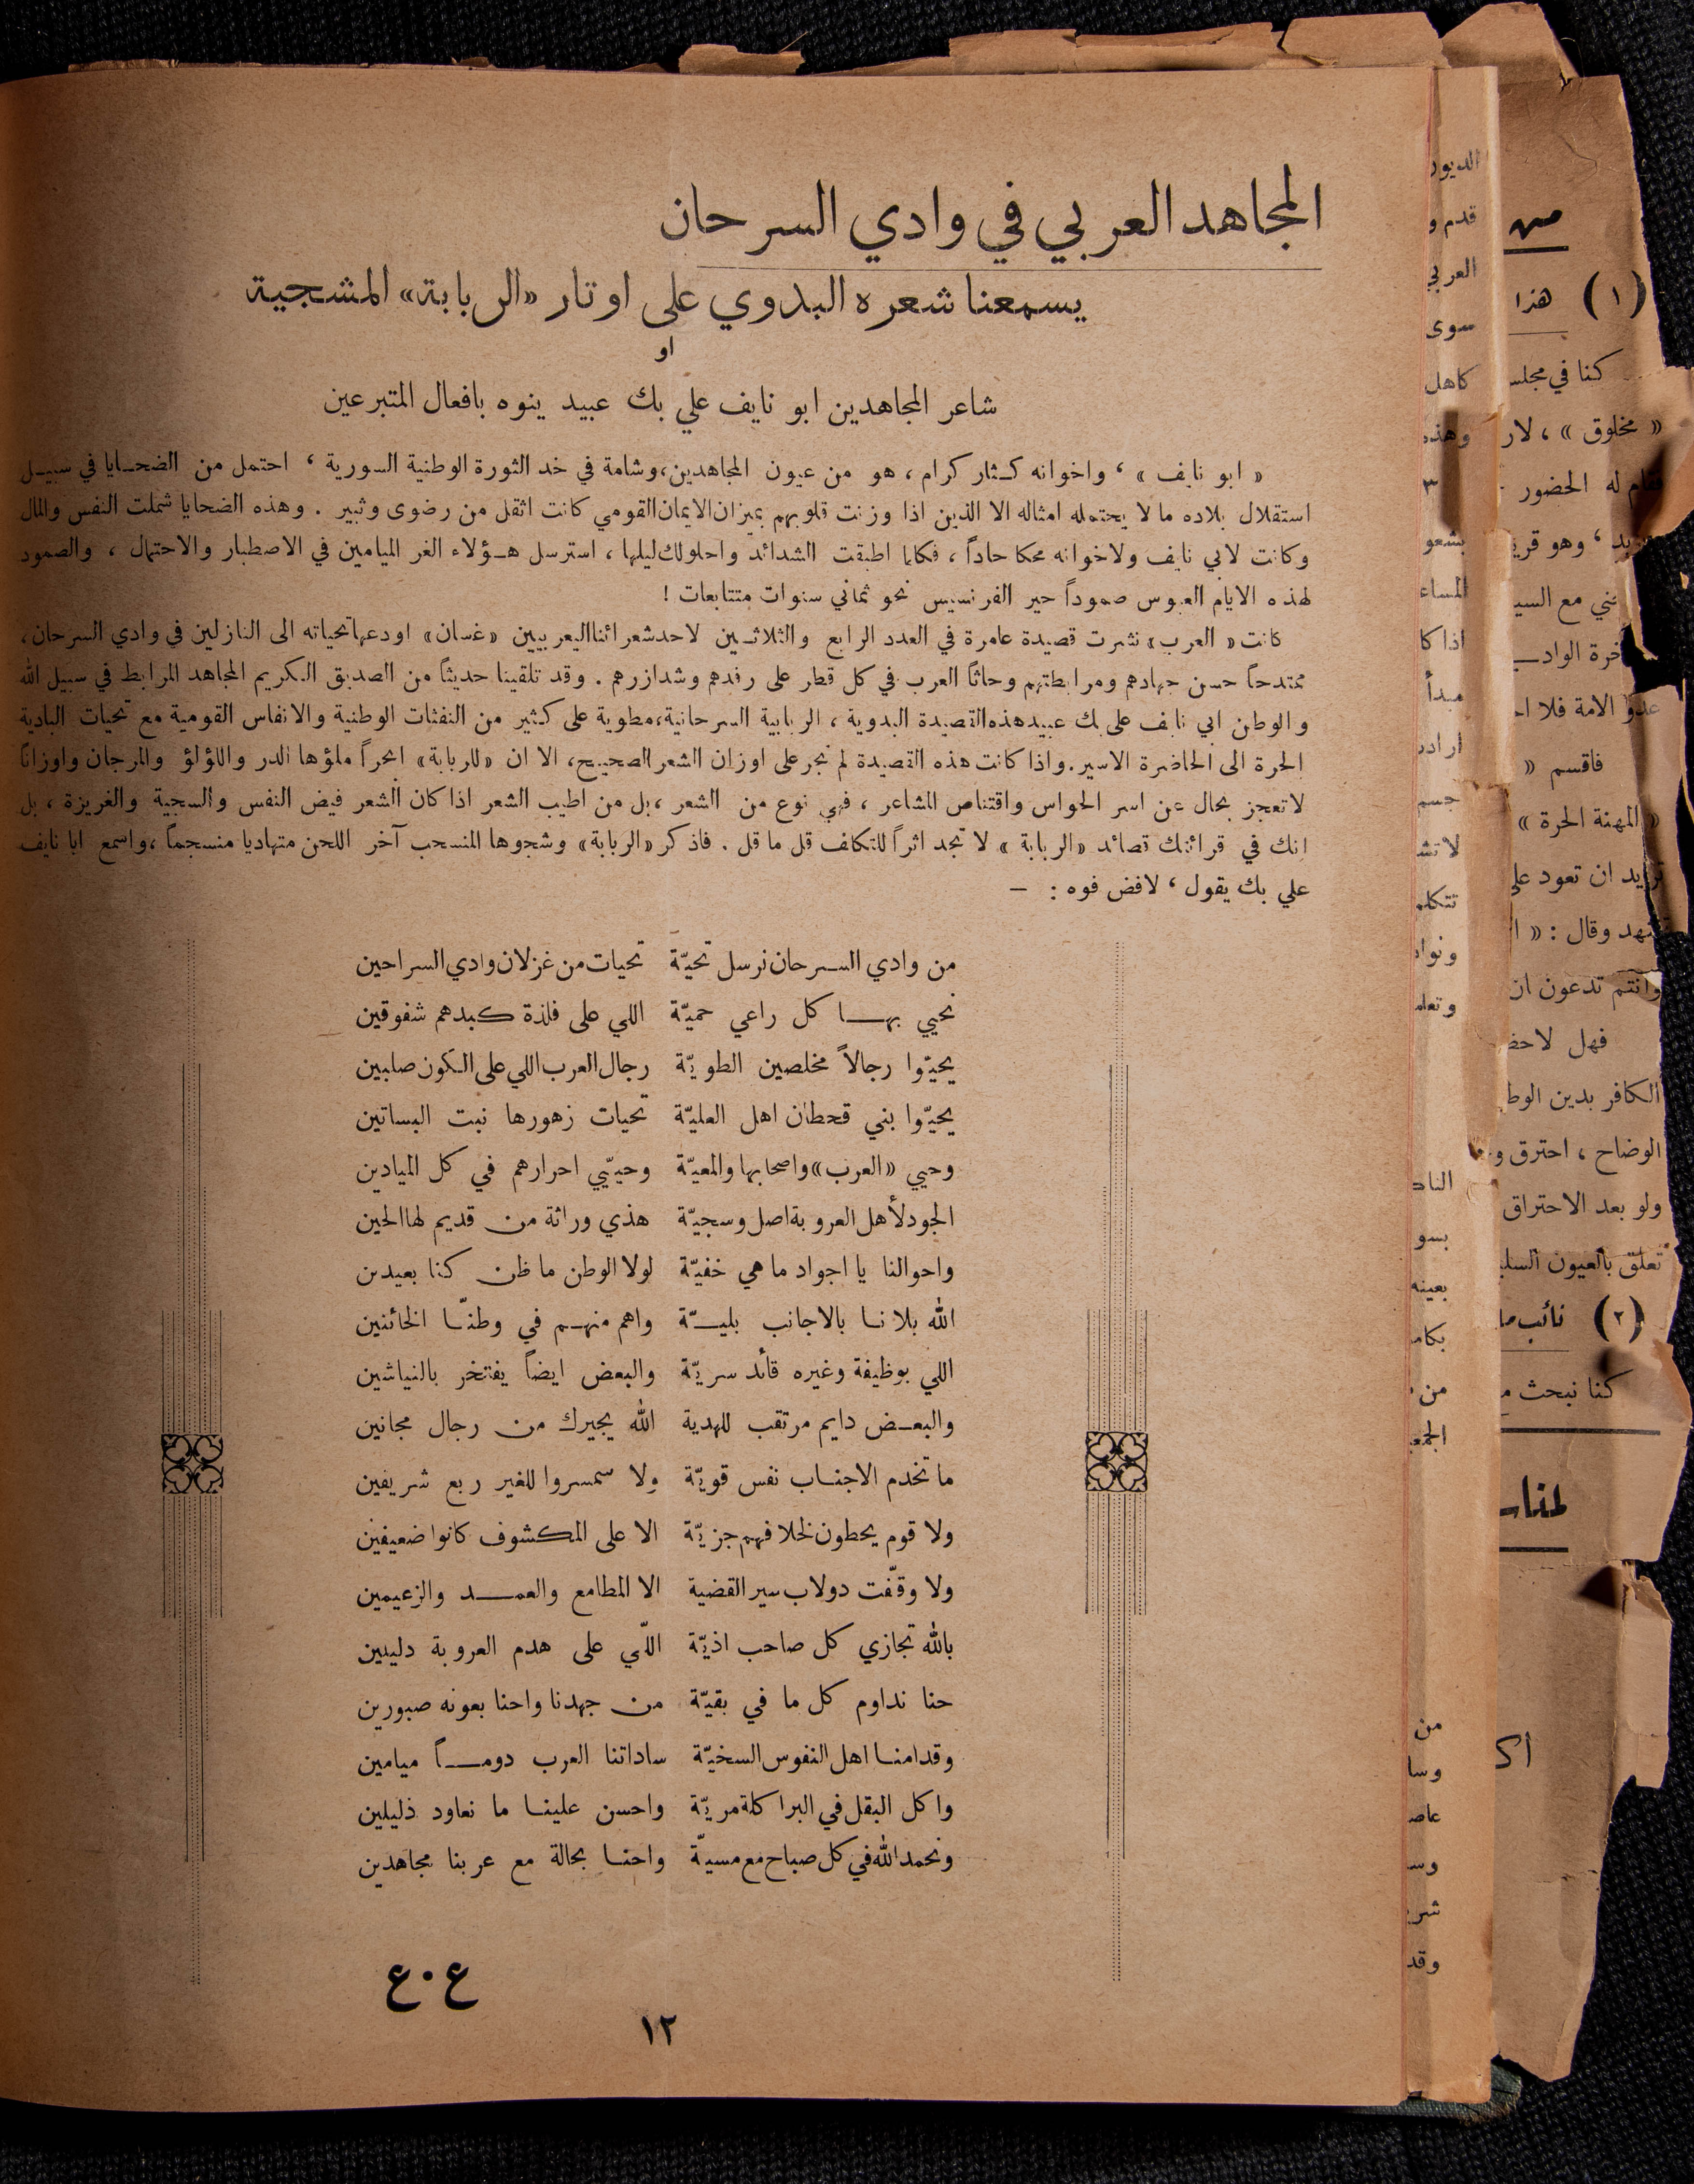 المجاهد العربي في وادي السرحان
يسمعنا شعره البدوي على اوتار «الربابة» المشجية
او
شاعر المجاهدين ابو نايف علي بك عبيد ينوه بافعال المتبرعين
« ابو نايف » ، واخوانه كـثار كرام ، هو من عيون المجاهدين، وشامة في خد الثورة الوطنية السورية ، احتمل من الضحـايا في سبيـل
استقلال بلاده ما لا يحتمله امثاله الا الذين اذا وزنت قلوبهم بميزان الايمان القومي كانت اثقل من رضوى وثبير . وهذه الضحايا شملت النفس والمال
وكانت لابي نايف ولاخوانه محكا حاداً ، فكلما اطبقت الشدائد واحلولك ليلها ، استرسل هـؤلاء الغر الميامين في الاصطبار والاحتمال ، والصمود
لهذه الايام العبوس صموداً حير الفرنسيس نحو ثماني سنوات متتابعات !
كانت « العرب » نشرت قصيدة عامرة في العدد الرابع والثلاثـين لاحد شعرائنا اليعربيين «غسان» اودعها تحياته الى النازلين في وادي السرحان،
ممتدحاً حسن جهادهم ومرابطتهم وحاثاً العرب في كل قطر على رفدهم وشد ازرهم . وقد تلقينا حديثاً من الصديق الكريم المجاهد المرابط في سبيل الله
والوطن ابي نايف علي بك عبيد هذه القصيدة البدوية ، الربابية السرحانية، مطوية على كثير من النفثات الوطنية والانفاس القومية مع تحيات البادية
الحرة الى الحاضرة الاسير. واذا كانت هذه القصيدة لم تجر على اوزان الشعر الصحيح، الا ان «للربابة» ابحراً ملؤها الدر واللؤلؤ والمرجان واوزاناً
لا تعجز بحال عن اسر الحواس واقتناص المشاعر ، فهي نوع من الشعر ، بل من اطيب الشعر اذا كان الشعر فيض النفس والسجية والغريزة ، بل
انك في قرائتك قصائد «الربابة » لا تجد اثراً للتكلف قل ما قل . فاذكر «الربابة» وشجوها المنسحب آخر اللحن متهاديا منسجماً ، واسمع ابا نايف
علي بك يقول ، لافض فوه : —
من وادي السـرحان نرسل تحيّة تحيات من غزلان وادي السراحين
نحيي بهـا كل راعي حميّة اللي على فلذة كبدهم شفوقين
يحيّوا رجالاً مخلصين الطويّة رجال العرب اللي على الكون صلبين
يحيّوا بني قحطان اهل العليّة تحيات زهورها نبت البساتين
وحيي «العرب» واصحابها والمعيّة وحيّي احرارهم في كل الميادين
الجود لأهل العروبة اصل وسجيّة هذي وراثة من قديم لها الحين
واحوالنا يا اجواد ما هي خفيّة لولا الوطن ما ظن كنا بعيدين
الله بلانـا بالاجانب بليـّة واهم منهـم في وطنّـا الخائنين
اللي بوظيفة وغيره قائد سريّة والبعض ايضاً يفتخر بالنياشين
والبعـض دايم مرتقب للهدية الله يجيرك من رجال مجانين
ما تخدم الاجنـاب نفس قويّة ولا سمسروا للغير ربع شريفين
ولا قوم يحطون لخلافهم جزيّة الا على المكشوف كانوا ضعيفين
ولا وقّفت دولاب سير القضية الا المطامع والعمـد والزعيمين
بالله تجازي كل صاحب اذيّة اللّي على هدم العروبة دليلين
حنا نداوم كل ما في بقيّة من جهدنا واحنا بعونه صبورين
وقدامنـا اهل النفوس السخيّة ساداتنا العرب دومـاً ميامين
واكل البقل في البر اكلة مريّة واحسن علينـا ما نعاود ذليلين
ونحمد الله في كل صباح مع مسيّة واحنـا بحالة مع عربنا مجاهدين
ع ٠ ع
١٢
الديور
قدم و
العربي
سوى
كاهل
وهذه
٣
بشعو
المساء
اذا كا
مبدأ
اراد
جسم
لا تش
تتكلم
ونوا
وتعلم
الناد
بسو
بعينه
بكام
من
الجمع
من
وسا
عاص
وس
شر
وقد
من
(١) هذا
كنا في مجلس
« مخلوق » ، لار
قام له الحضور
، وهو قري
ني مع السي
خرة الواد
عدو الامة فلا
فاقسم «
« المهنة الحرة »
تريد ان تعود على
وقال : « ا
وانتم تدعون ان
فهل لاحظ
الكافر بدين الوط
الوضاح ، احترق و
ولو بعد الاحتراق
تعلق بالعيون السلي
(٢) نائب
كنا نبحث م